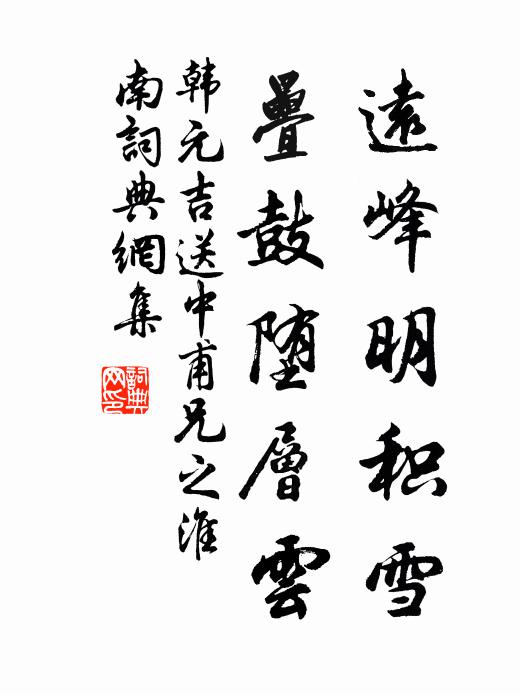 遠峰明积雪
疊鼓堕層雲
韩元吉送中甫兄之淮
南詞典網集
詞典
网印